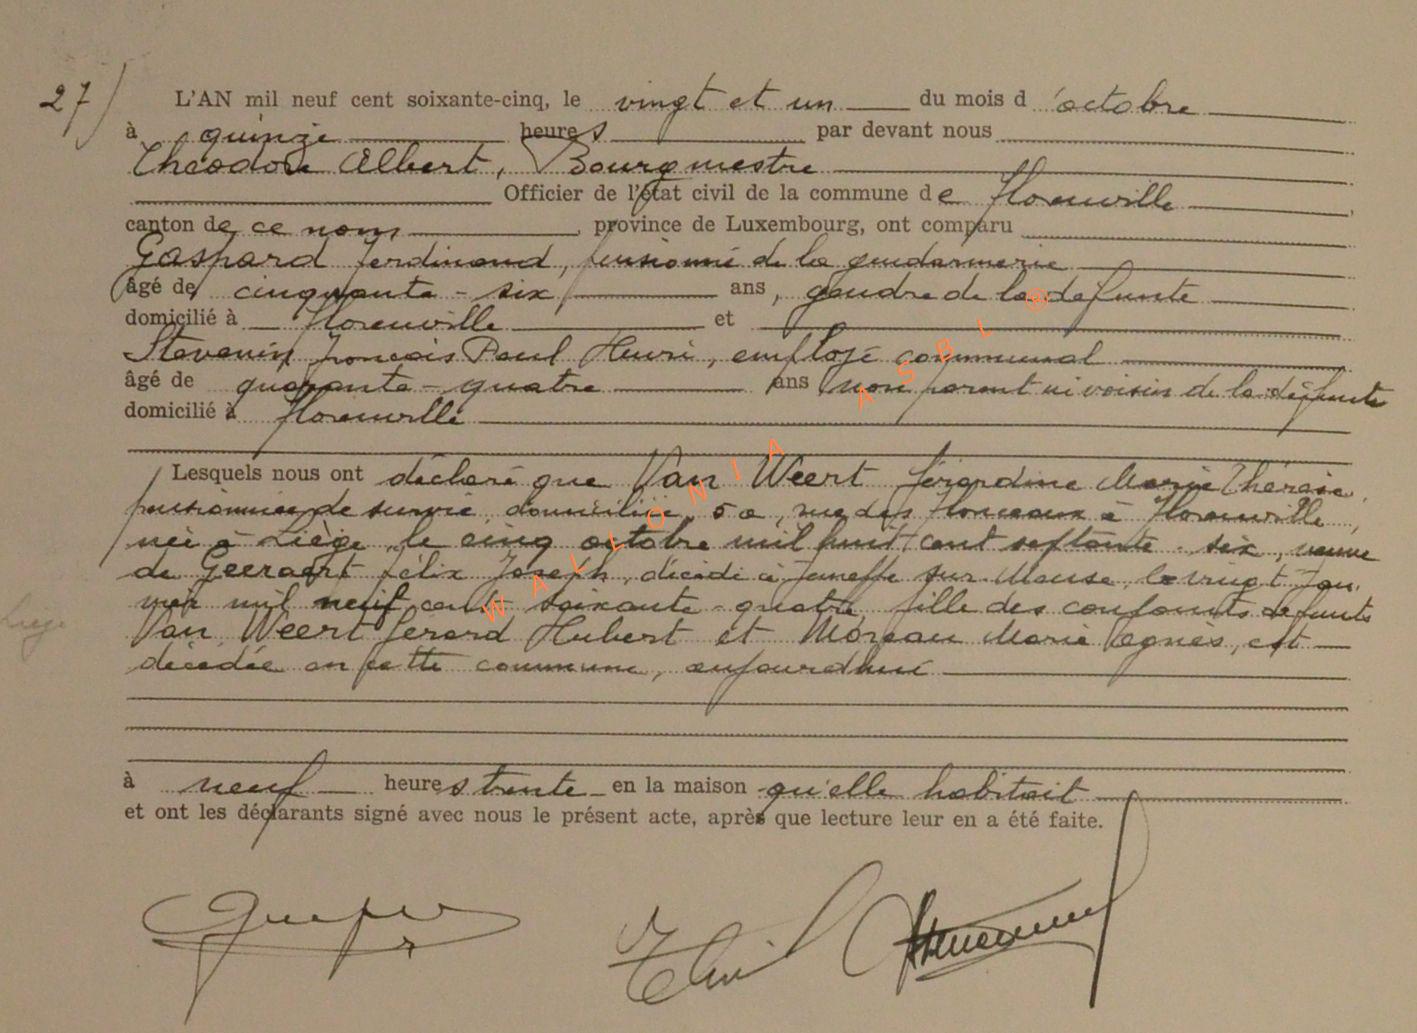 27/ L'AN mil neuf cent soixante-cinq, le vingt et un du mois d'octobre
à quinze heures par devant nous
Théodore Albert, Bourgmestre
Officier de l'état civil de la commune de Florenville
canton de ce nom, province de Luxembourg, ont comparu
Gaspard Ferdinand, pensionné de la gendarmerie
âgé de cinquante-six ans, gendre de la défunte
domicilié à Florenville et
Stevenin François Paul Henri, employé communal
âgé de quarante-quatre ans non parent ni voisin de la défunte
domicilié à Florenville
Lesquels nous ont déclaré que Van Weert Gérardine Marie Thérèse,
pensionnée de survie, domiciliée 50 a, rue des à Florenville,
née à Liège, le cinq octobre mil huit cent septante-six, veuve
de Geeraert Félix Joseph, décédé à Jeneffe sur Meuse, le vingt jan
vier mil neuf cent soixante-quatre fille des conjoints défunts
Liège
Van Weert Gérard Hubert et Moreau Marie Agnès, est
décédée en cette commune, aujourd'hui
à neuf heures trente en la maison qu'elle habitait
et ont les déclarants signé avec nous le présent acte, après que lecture leur en a été faite.
WALLONIA ASBL ©